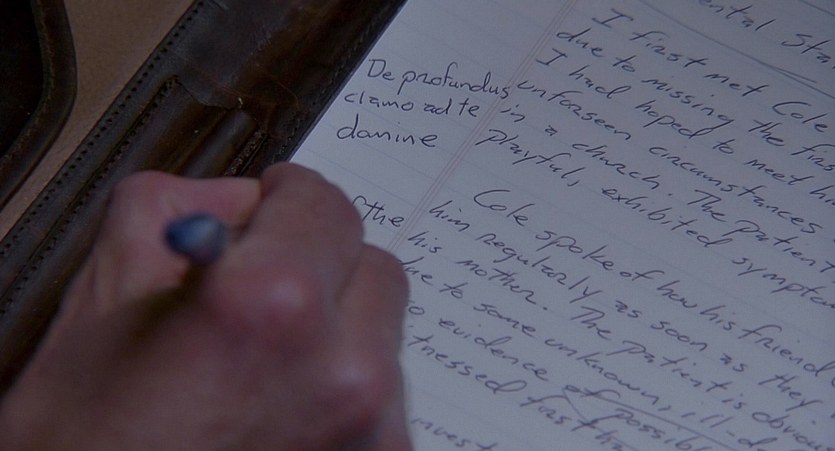 ental Sta
I first met Cole
due to missing the firs
I had hoped to meet h
unforseen circumstances
in a church. The patient
playful, exhibited sympto
De profundus
clamo ad te
domine
Cole spoke of how his friend
him regularly as soon as they
his mother. The patient is obvious
due to some unknown, ill-d
so evidence of possib
tnessed firstha
nvest
of the